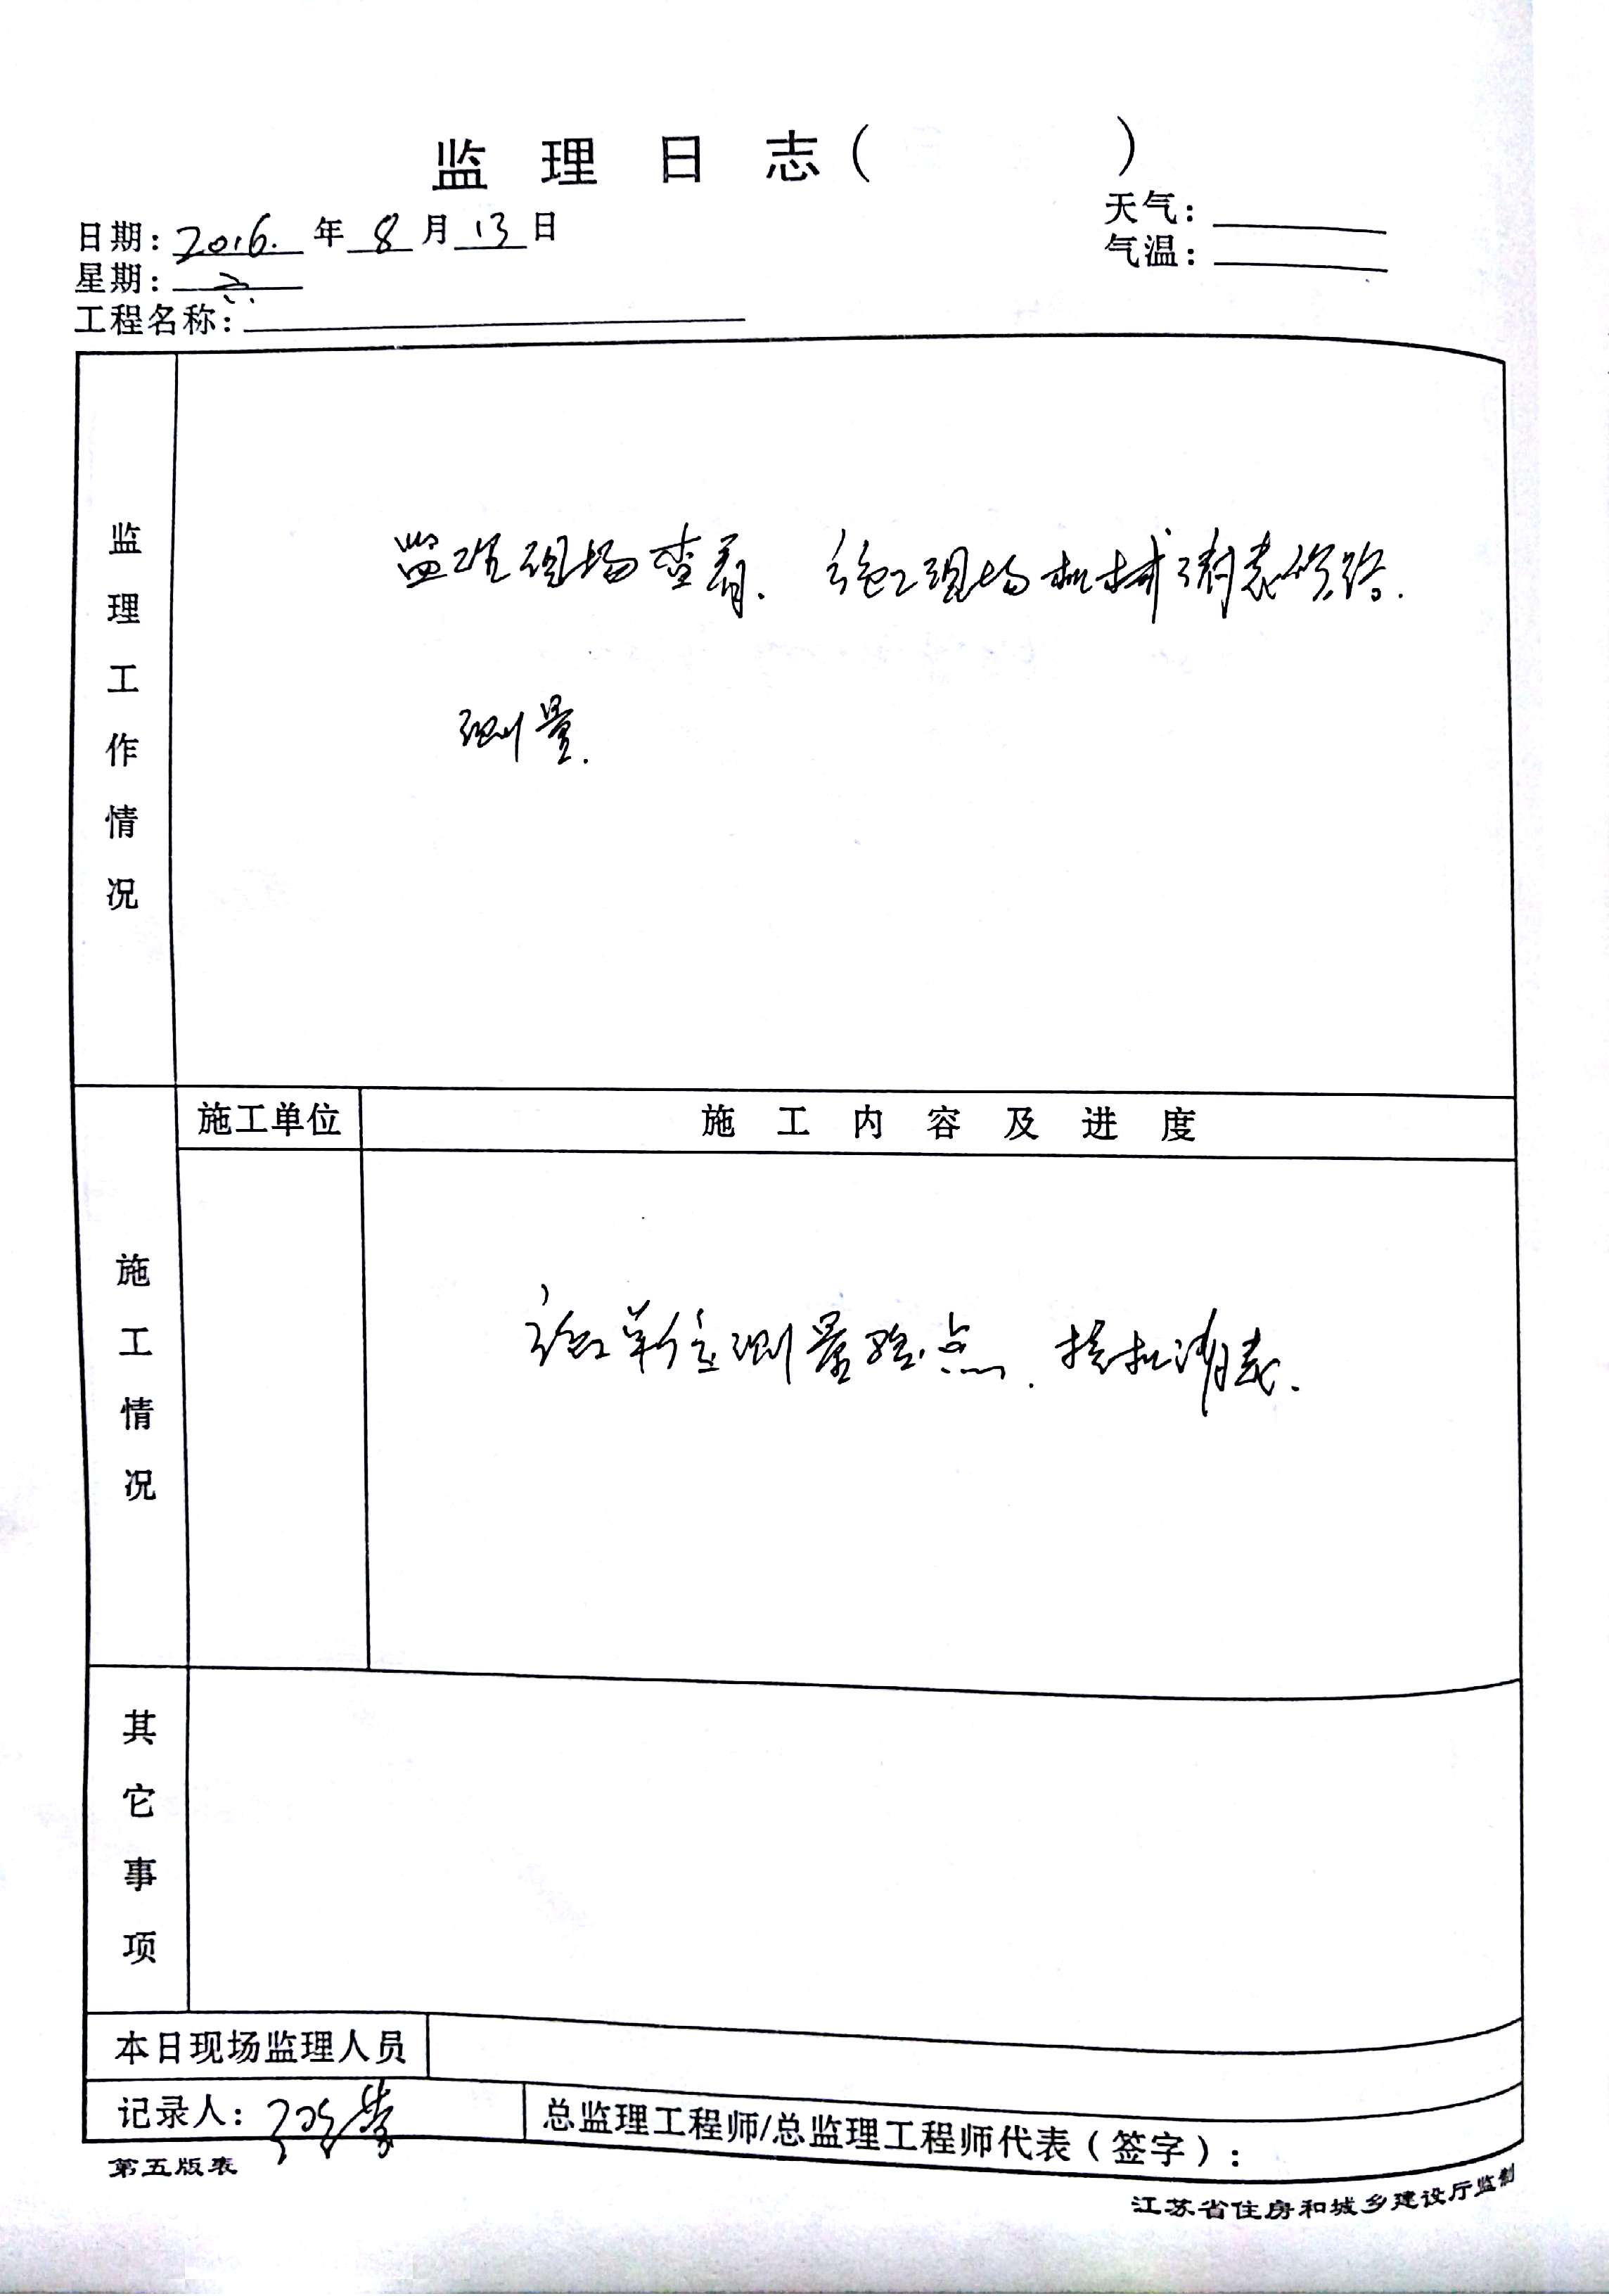 监理日志（ ）
日期：2016.年8月13日
天气：
星期：六
气温：
工程名称：
监理工作情况
监理现场查看. 施工现场机械清表修路.
测量.
施工单位
施工内容及进度
施工情况
施工单位测量 点. 挖机清表.
其它事项
本日现场监理人员
记录人：
总监理工程师/总监理工程师代表（签字）：
第五版表
江苏省住房和城乡建设厅监制